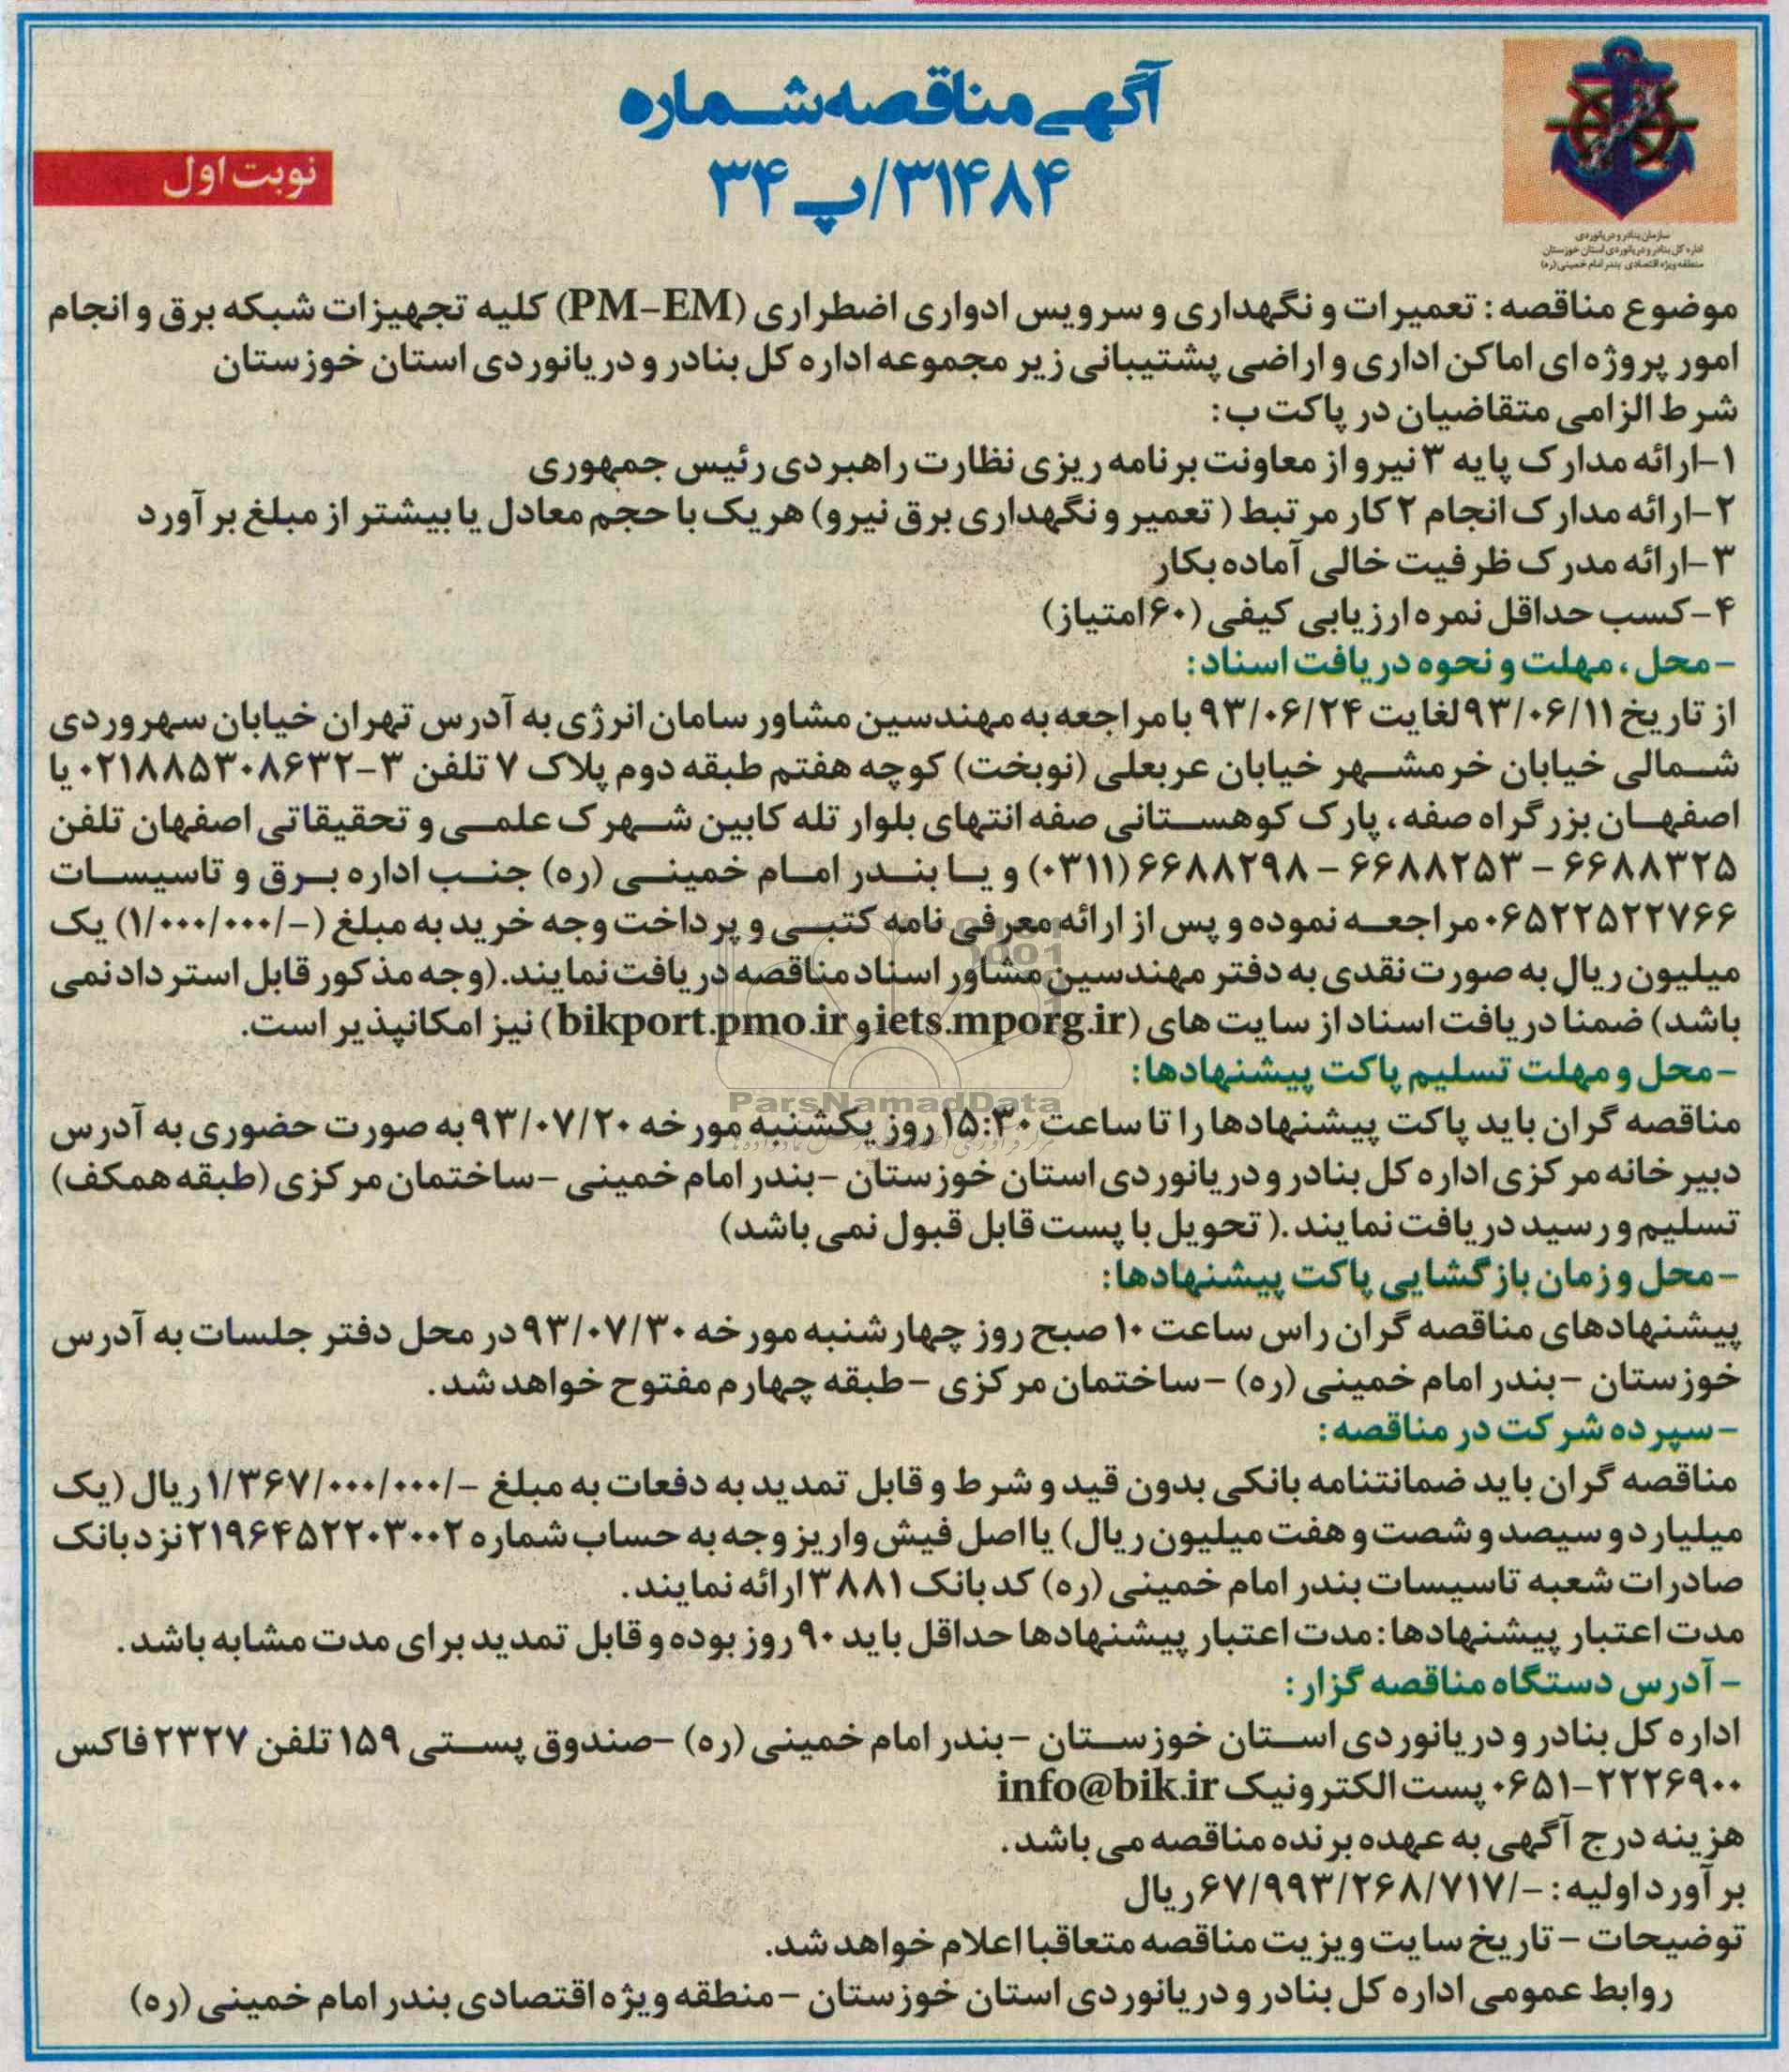 آگهی مناقصه شماره
۳۱۴۸۴/پ۳۴
نوبت اول
سازمان بنادر و دریانوردی
اداره کل بنادر و دریانوردی استان خوزستان
منطقه ویژه اقتصادی بندر امام خمینی (ره)
موضوع مناقصه : تعمیرات و نگهداری و سرویس ادواری اضطراری (PM-EM) کلیه تجهیزات شبکه برق و انجام
امور پروژه ای اماکن اداری و اراضی پشتیبانی زیر مجموعه اداره کل بنادر و دریانوردی استان خوزستان
شرط الزامی متقاضیان در پاکت ب:
۱-ارائه مدارک پایه ۳ نیرو از معاونت برنامه ریزی نظارت راهبردی رئیس جمهوری
۲-ارائه مدارک انجام ۲ کار مرتبط ( تعمیر و نگهداری برق نیرو) هر یک با حجم معادل یا بیشتر از مبلغ بر آورد
۳-ارائه مدرک ظرفیت خالی آماده بکار
۴-کسب حداقل نمره ارزیابی کیفی (۶۰امتیاز)
-محل، مهلت و نحوه دریافت اسناد:
از تاریخ ۹۳/۰۶/۱۱لغایت ۹۳/۰۶/۲۴ با مراجعه به مهندسین مشاور سامان انرژی به آدرس تهران خیابان سهروردی
شمالی خیابان خرمشهر خیابان عربعلی (نوبخت) کوچه هفتم طبقه دوم پلاک ۷ تلفن ۳-۰۲۱۸۸۵۳۰۸۶۳۲ یا
اصفهان بزرگراه صفه، پارک کوهستانی صفه انتهای بلوار تله کابین شهرک علمی و تحقیقاتی اصفهان تلفن
۶۶۸۸۳۲۵ - ۶۶۸۸۲۵۳ - ۶۶۸۸۲۹۸ (۰۳۱۱) و یا بندر امام خمینی (ره) جنب اداره برق و تاسیسات
۰۶۵۲۲۵۲۲۷۶۶ مراجعه نموده و پس از ارائه معرفی نامه کتبی و پرداخت وجه خرید به مبلغ (-/۱/۰۰۰/۰۰۰) یک
میلیون ریال به صورت نقدی به دفتر مهندسین مشاور اسناد مناقصه دریافت نمایند. (وجه مذکور قابل استرداد نمی
باشد) ضمنا دریافت اسناد از سایت های (iets.mporg.ir و bikport.pmo.ir) نیز امکانپذیر است.
-محل و مهلت تسلیم پاکت پیشنهادها:
ParsNamadData
مناقصه گران باید پاکت پیشنهادها را تا ساعت ۱۵:۳۰ روز یکشنبه مورخه ۹۳/۰۷/۲۰ به صورت حضوری به آدرس
دبیرخانه مرکزی اداره کل بنادر و دریانوردی استان خوزستان -بندر امام خمینی -ساختمان مرکزی (طبقه همکف)
تسلیم و رسید دریافت نمایند .( تحویل با پست قابل قبول نمی باشد)
-محل و زمان بازگشایی پاکت پیشنهادها:
پیشنهادهای مناقصه گران راس ساعت ۱۰ صبح روز چهارشنبه مورخه ۹۳/۰۷/۳۰ در محل دفتر جلسات به آدرس
خوزستان -بندر امام خمینی (ره) -ساختمان مرکزی -طبقه چهارم مفتوح خواهد شد.
-سپرده شرکت در مناقصه:
مناقصه گران باید ضمانتنامه بانکی بدون قید و شرط و قابل تمدید به دفعات به مبلغ -/۱/۳۶۷/۰۰۰/۰۰۰ ریال (یک
میلیارد و سیصد و شصت و هفت میلیون ریال) یا اصل فیش واریز وجه به حساب شماره ۲۱۹۶۴۵۲۲۰۳۰۰۲ نزد بانک
صادرات شعبه تاسیسات بندر امام خمینی (ره) کد بانک ۳۸۸۱ ارائه نمایند.
مدت اعتبار پیشنهادها: مدت اعتبار پیشنهادها حداقل باید ۹۰ روز بوده و قابل تمدید برای مدت مشابه باشد.
-آدرس دستگاه مناقصه گزار:
اداره کل بنادر و دریانوردی استان خوزستان -بندر امام خمینی (ره) -صندوق پستی ۱۵۹ تلفن ۲۳۲۷ فاکس
۰۶۵۱-۲۲۲۶۹۰۰ پست الکترونیک info@bik.ir
هزینه درج آگهی به عهده برنده مناقصه می باشد.
بر آورد اولیه: -/۶۷/۹۹۳/۲۶۸/۷۱۷ ریال
توضیحات - تاریخ سایت ویزیت مناقصه متعاقبا اعلام خواهد شد.
روابط عمومی اداره کل بنادر و دریانوردی استان خوزستان -منطقه ویژه اقتصادی بندر امام خمینی (ره)